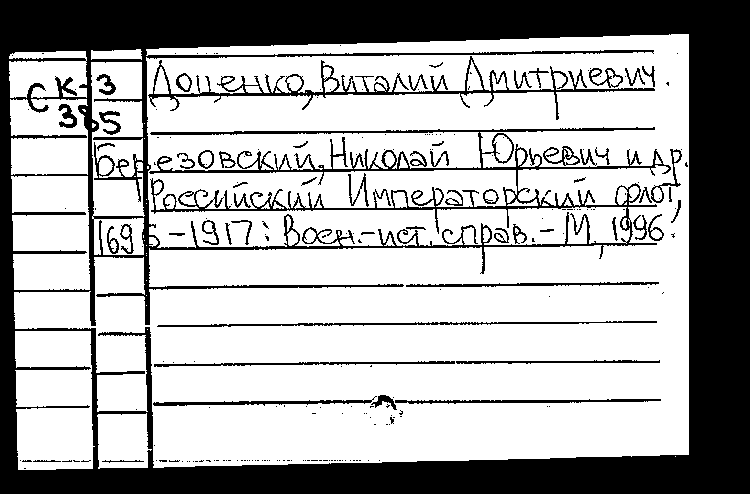 СК-3 Доценко, Виталий Дмитриевич.
385
Березовский, Николай Юрьевич и др.
Российский Императорский флот,
1696-1917: Воен.-ист. справ. - М, 1996.